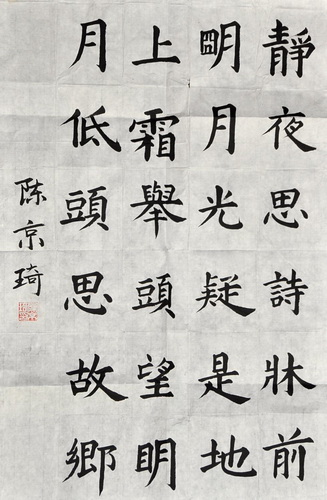 靜夜思詩牀前
明月光疑是地
上霜舉頭望明
月低頭思故鄉
陈京琦